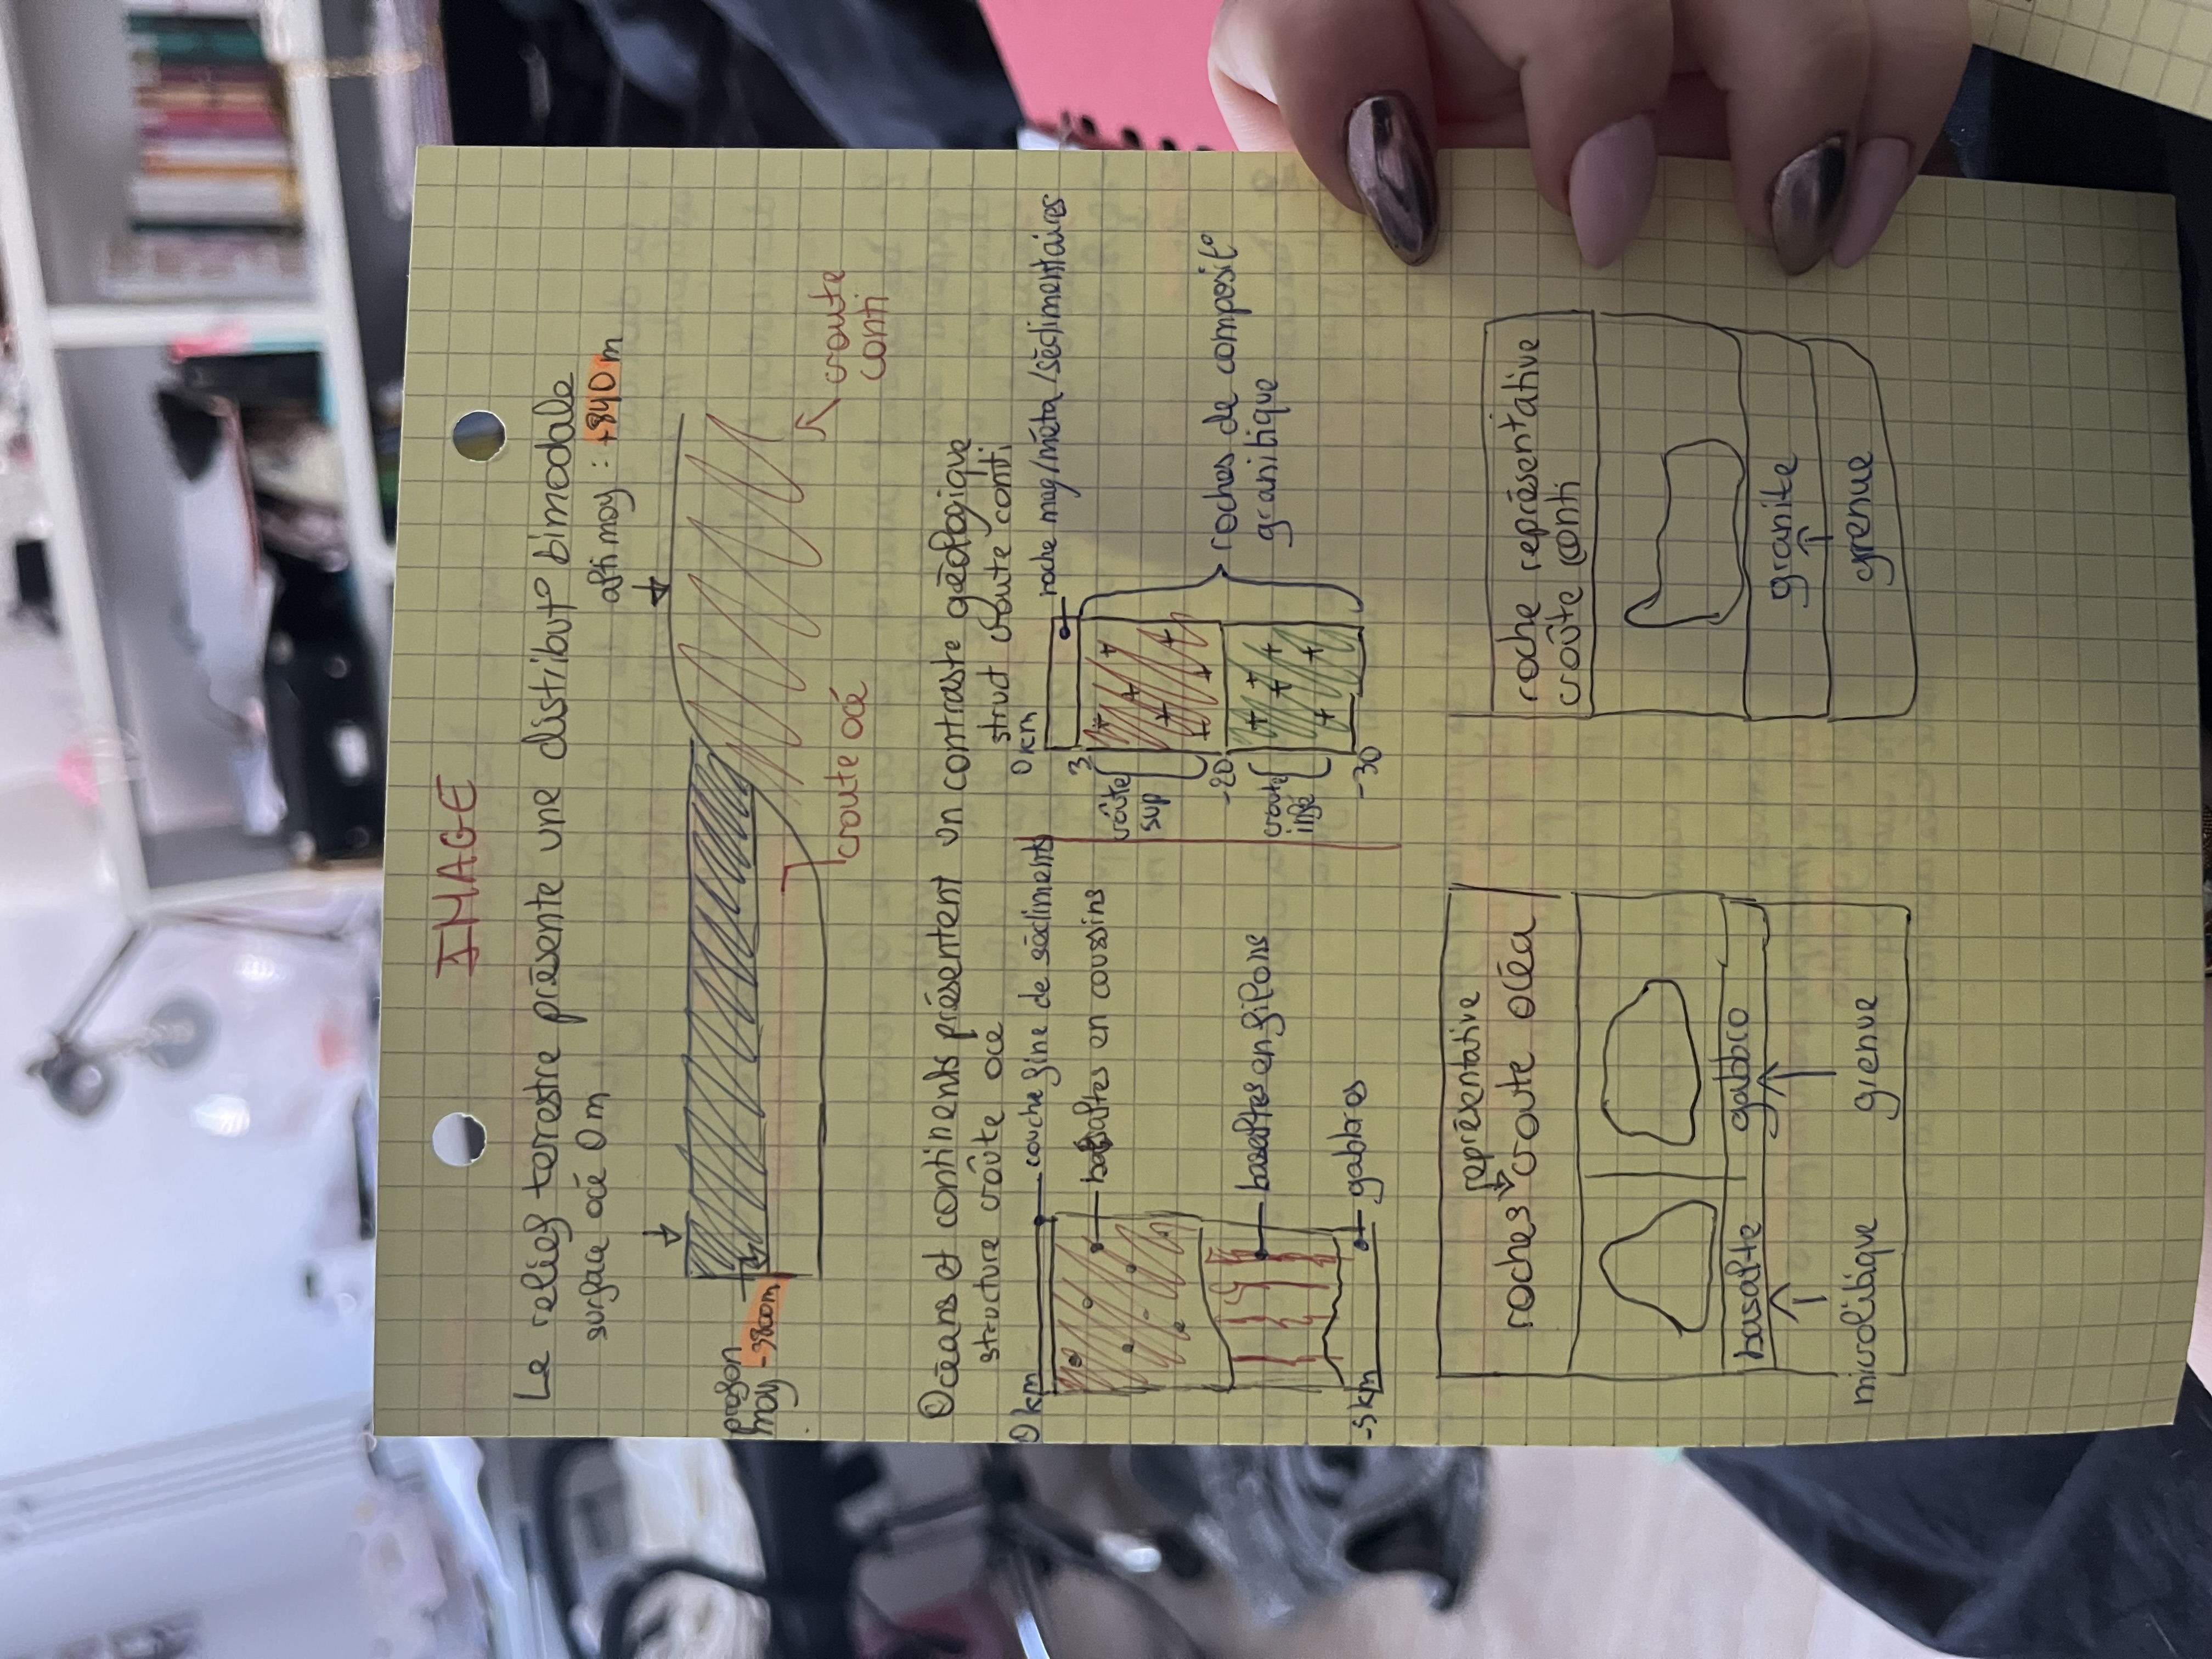 IMAGE
Le relief terrestre présente une distribut° bimodale
surface océ 0 m
alti moy : +840 m
profon
moy -3800m
croute océ
croute
conti
Océans et continents présentent un contraste géologique
structure croûte océ
struct croute conti
0 km
couche fine de sédiments
basaltes en coussins
basaltes en filons
gabbros
-5 km
0 km
roche mag/méta/sédimentaires
3
croûte
sup
-20
croute
infé
-30
roches de composit°
granitique
représentative
roches croute océa
basalte
gabbro
microlitique
grenue
roche représentative
croûte conti
granite
grenue